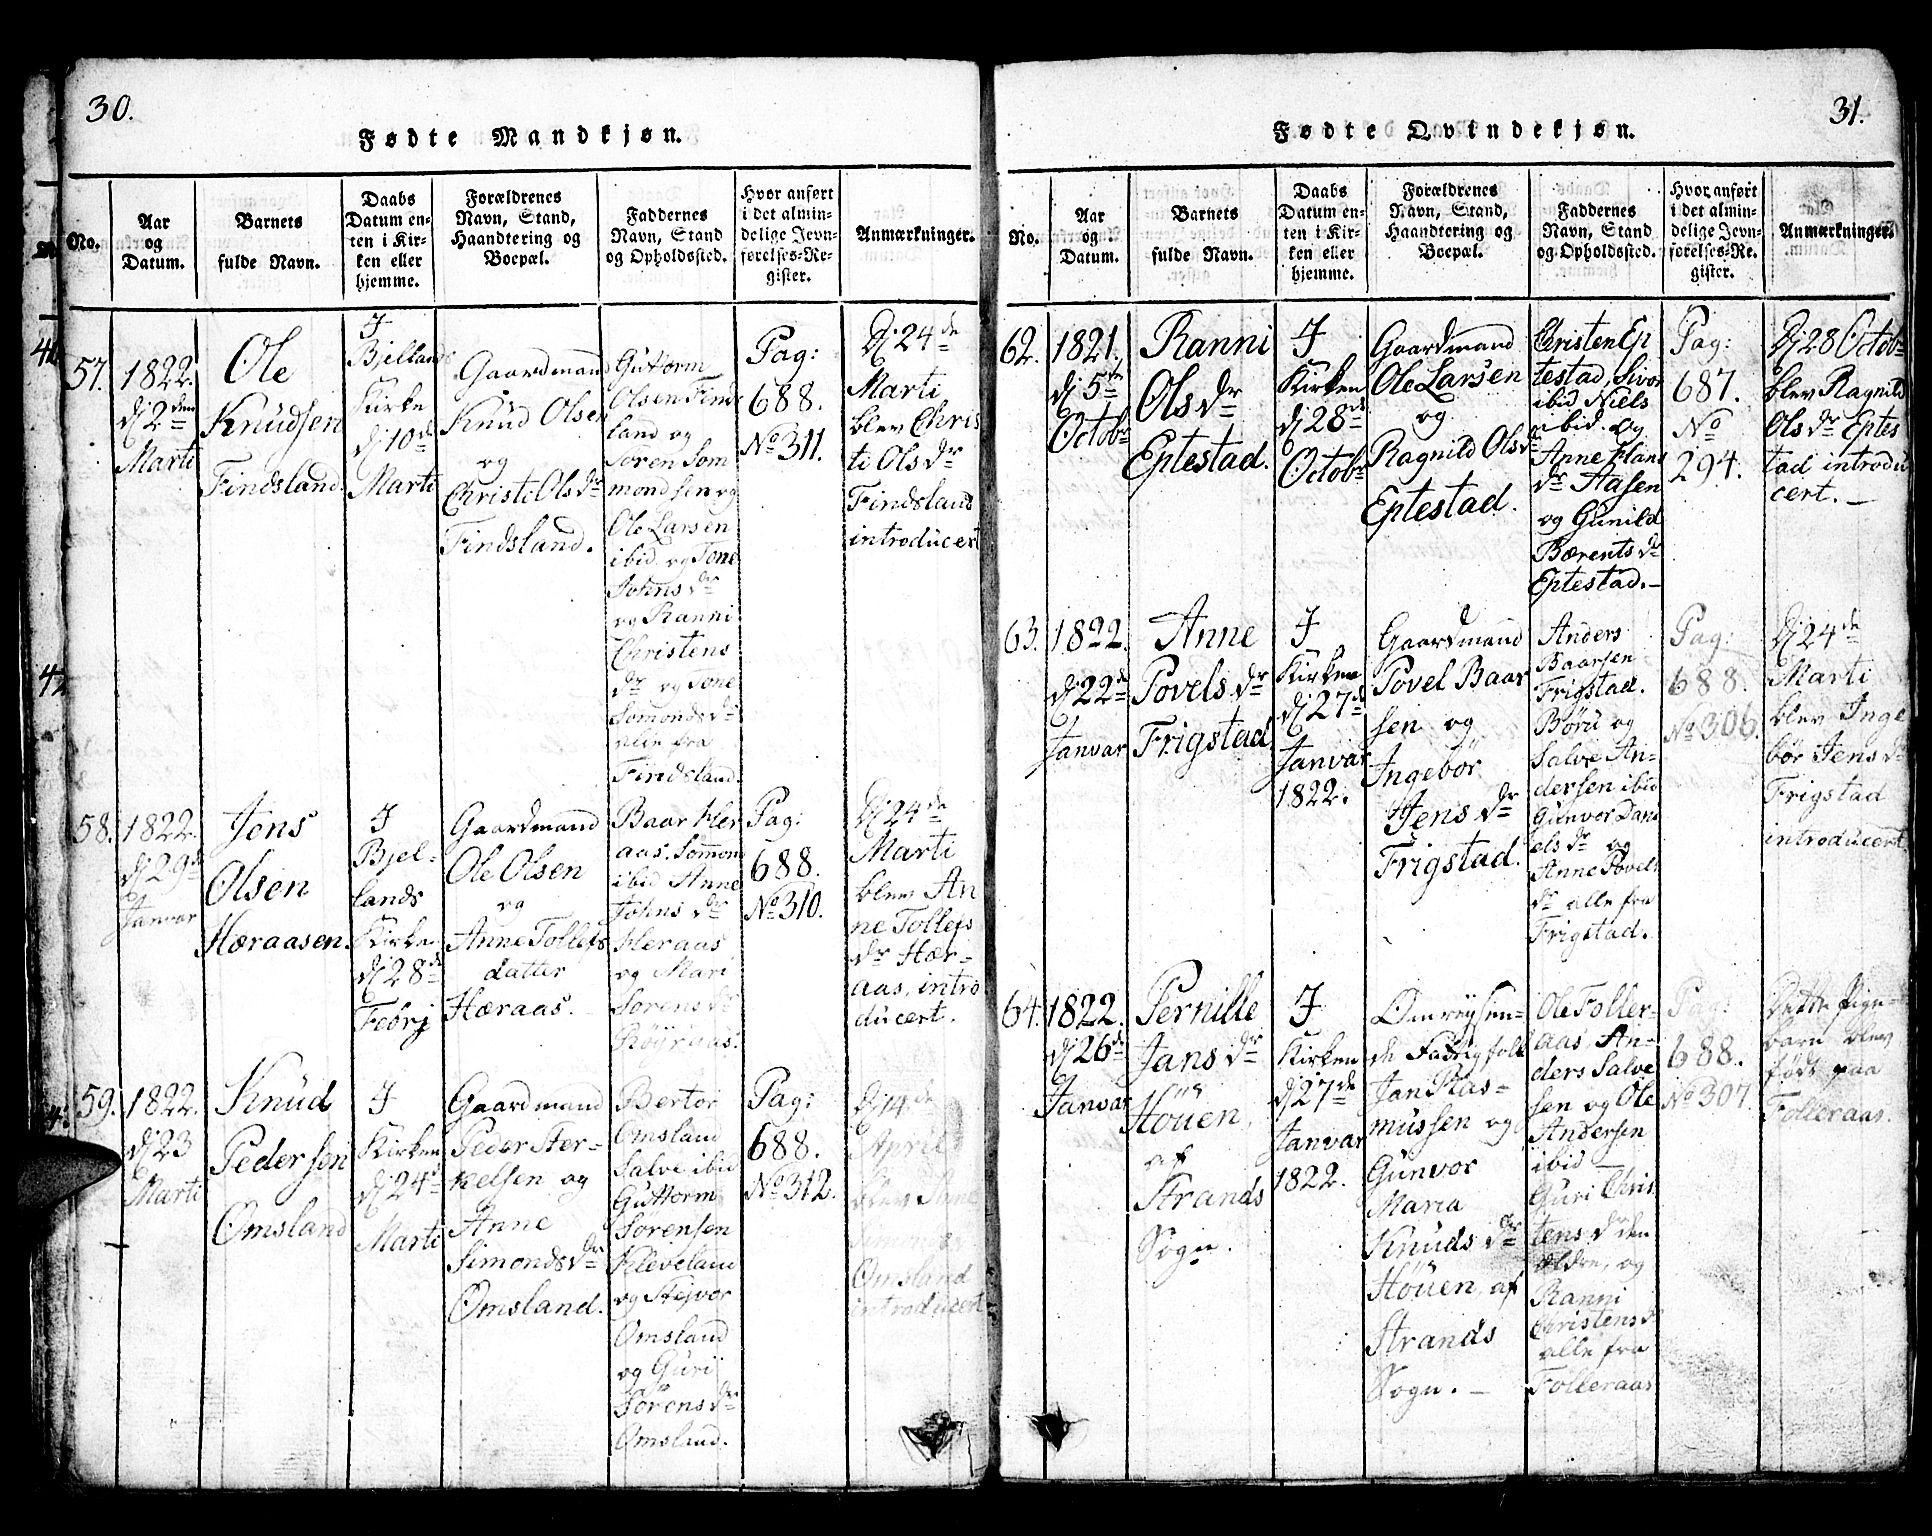 30.
Fødte Mandkjøn.
No.
Aar
og
Datum.
Barnets
fulde Navn.
Daabs
Datum en-
ten i Kir-
ken eller
hjemme.
Forældrenes
Navn, Stand,
Haandtering og
Boepæl.
Faddernes
Navn, Stand
og Opholdssted.
Hvor anført
i det almin-
delige Jevn-
førelses-Re-
gister.
Anmærkninger.
57.
1822.
dj 2den
Marti
Ole
Knudsen
Findsland.
I
Bjellands
Kirke
dj 10de
Marti
Gaardmand
Knud Olsen
og
Christi Olsdr
Findsland.
Guttorm
Olsen Finds
land og
Søren Som
mondsen og
Ole Larsen
ibid og Tone
Johnsdr
og Ranni
Christens
dr og Tone
Somondsdr
alle fra
Findsland.
Pag:
688.
No 311.
Dj 24de
Marti
blev Chris
ti Olsdr
Findsland
introducert
58.
1822.
dj 29de
Janvar
Jens
Olsen
Hæraasen.
I
Bjel-
lands
Kirke
dj 28de
Febrj
Gaardmand
Ole Olsen
og
Anne Tollefs
datter
Hæraas.
Baar Her
aas. Sommon
ibid Anne
Johnsdr
Heraas
og Mari
Sorensdr
Röyraas.
Pag:
688.
No 310.
Dj 24de
Marti
blev An
ne Tollefs
dr Hær-
aas, intro
ducert.
59.
1822.
dj 23
Marti
Knud
Pedersen
Omsland
I
Kirken
dj 24de
Marti
Gaardmand
Peder Ster-
kelsen og
Anne
Simondsdr
Omsland.
Bertor
Omsland
Salve ibid
Guttorm
Sorensen
Kleveland
og Stejvor
Omsland
og Gurij
Sörensdr
Omsland.
Pag:
688.
No 312.
Dj 14de
April
blev Anne
Omsland
introducert
31.
Fødte Qvindekjøn.
No.
Aar
og
Datum.
Barnets
fulde Navn.
Daabs
Datum en-
ten i Kir-
ken eller
hjemme.
Forældrenes
Navn, Stand,
Haandtering og
Boepæl.
Faddernes
Navn, Stand
og Opholdssted.
Hvor anført
i det almin-
delige Jevn-
førelses-Re-
gister.
Anmærkninger.
62.
1821.
dj 5te
Octobr
Ranni
Olsdr
Eptestad.
I
Kirken
dj 28de
Octobr
Gaardmand
Ole Larsen
og
Ragnild Olsdr
Eptestad.
Christen Ep
testad, Sivor
ibid Niels
ibid. og
Anne Hans
dr Aasen
og Gunild
Bærentsdr
Eptestad.-
Pag:
687.
No
294.
Dj 28 Octobr
blev Ragnild
Olsdr Eptes
tad introdu
cert. -
63.
1822.
dj 22de
Janvar
Anne
Povelsdr
Frigstad
I
Kirken
dj 27de
Janvar
1822.
Gaardmand
Povel Baar
sen og
Ingebör
Jensdr
Frigstad.
Anders
Baarsen
Frigstad.
Böru og
Salve An-
dersen ibid
Gunvor Dani
elsdr og
Anne Povels
dr alle fra
Frigstad.
Pag:
688.
No 306.
Dj 24de
Marti
blev Inge
bör Jensdr
Frigstad
introducert.
64.
1822.
dj 26de
Janvar
Pernille
Jansdr
Höuen,
af
Strands
Sogn.
I
Kirken
dj 27de
Janvar
1822.
Omreysen-
de Fattigfolk
Jan Ras-
mussen og
Gunvor
Maria
Knudsdr
Höuen, af
Strands
Sogn. -
Ole Foller-
aas, An-
ders Salve
sen og Ole
Andersen
ibid
Guri Chris
tensdr den
ældre, og
Ranni
Christensdr
alle fra
Folleraas
Pag:
688.
No 307
Dette Pige-
barn blev
födt paa
Folleraas.